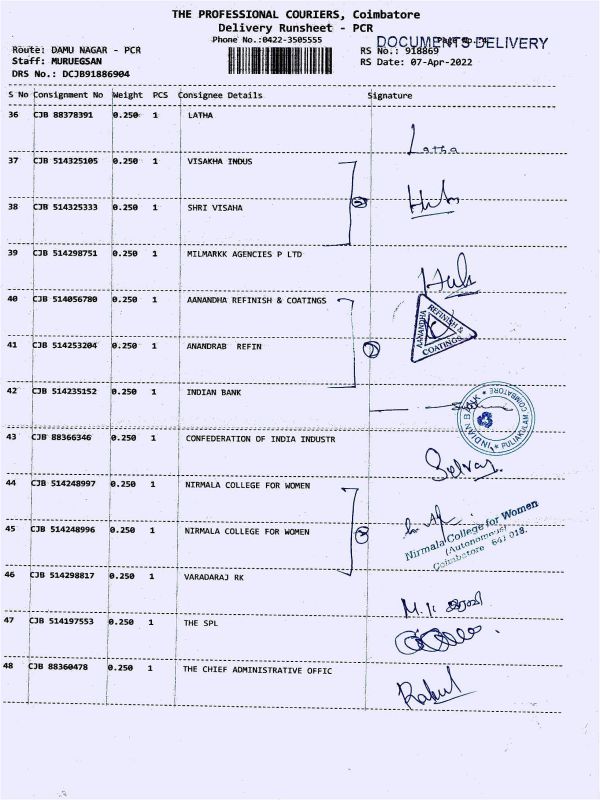 THE PROFESSIONAL COURIERS, Coimbatore
Delivery Runsheet - PCR
Phone No.:0422-3505555
DOCUMENTS DELIVERY
Route: DAMU NAGAR - PCR
RS No.: 918869
Staff: MURUEGSAN
RS Date: 07-Apr-2022
DRS No.: DCJB91886904
S No Consignment No Weight PCS Consignee Details Signature
36 CJB 88378391 0.250 1 LATHA
Latha
37 CJB 514325105 0.250 1 VISAKHA INDUS
38 CJB 514325333 0.250 1 SHRI VISAHA
39 CJB 514298751 0.250 1 MILMARKK AGENCIES P LTD
40 CJB 514056780 0.250 1 AANANDHA REFINISH & COATINGS
AANANDHA REFINISH & COATINGS
41 CJB 514253204 0.250 1 ANANDRAB REFIN
42 CJB 514235152 0.250 1 INDIAN BANK
INDIAN BANK * PULIAKULAM COIMBATORE *
43 CJB 88366346 0.250 1 CONFEDERATION OF INDIA INDUSTR
Selvaj
44 CJB 514248997 0.250 1 NIRMALA COLLEGE FOR WOMEN
Nirmala College for Women
(Autonomous)
Coimbatore 641 018.
45 CJB 514248996 0.250 1 NIRMALA COLLEGE FOR WOMEN
46 CJB 514298817 0.250 1 VARADARAJ RK
47 CJB 514197553 0.250 1 THE SPL
48 CJB 88360478 0.250 1 THE CHIEF ADMINISTRATIVE OFFIC
Rahul